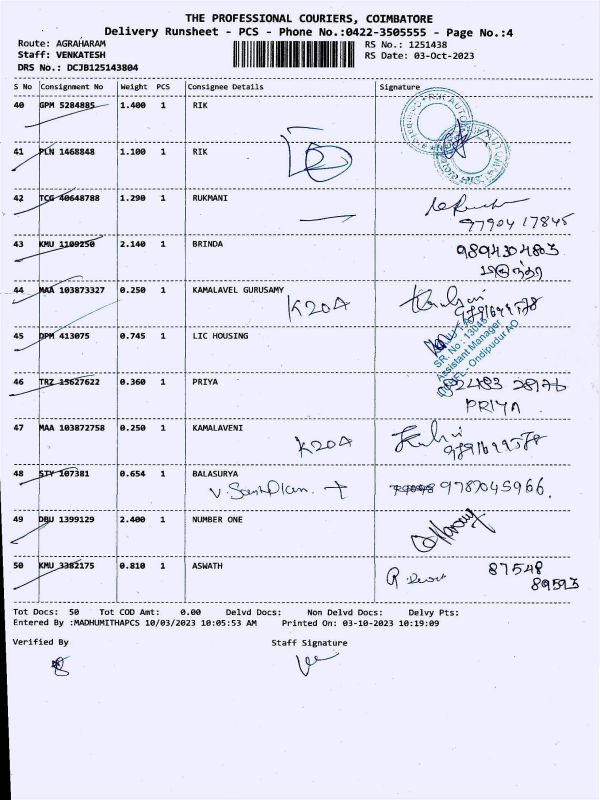 THE PROFESSIONAL COURIERS, COIMBATORE
Delivery Runsheet - PCS - Phone No.:0422-3505555 - Page No.:4
Route: AGRAHARAM RS No.: 1251438
Staff: VENKATESH RS Date: 03-Oct-2023
DRS No.: DCJB125143804
S No Consignment No Weight PCS Consignee Details Signature
40 GPM 5284885 1.400 1 RIK
41 PLN 1468848 1.100 1 RIK
42 TCG 40648788 1.290 1 RUKMANI
9790417845
43 KMU 1109250 2.140 1 BRINDA 9894304803
44 MAA 103873327 0.250 1 KAMALAVEL GURUSAMY
K20A
45 DPM 413075 0.745 1 LIC HOUSING
SR. No.: 13045
Assistant Manager
Ondipudur AO
46 TRZ 15627622 0.360 1 PRIYA
PRIYA
47 MAA 103872758 0.250 1 KAMALAVENI
K20A
48 STY 107381 0.654 1 BALASURYA
9787045966.
49 DBU 1399129 2.400 1 NUMBER ONE
50 KMU 3382175 0.810 1 ASWATH 87548
89593
Tot Docs: 50 Tot COD Amt: 0.00 Delvd Docs: Non Delvd Docs: Delvy Pts:
Entered By :MADHUMITHAPCS 10/03/2023 10:05:53 AM Printed On: 03-10-2023 10:19:09
Verified By Staff Signature